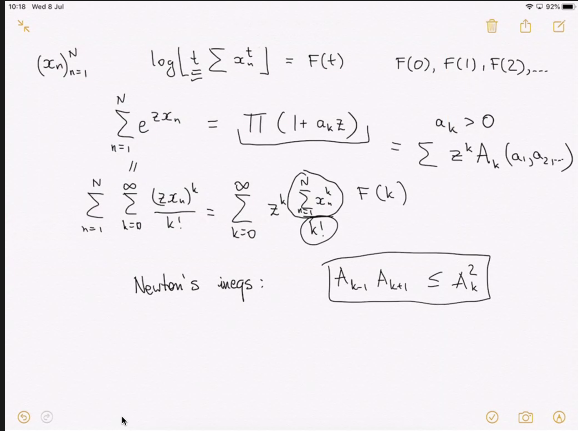 10:18 Wed 8 Jul 92%
(xₙ)ₙ₌₁ᴺ log[t Σ xₙᵗ] = F(t) F(0), F(1), F(2),...
Σₙ₌₁ᴺ e^{zxₙ} = Π (1 + aₖz) aₖ > 0
= Σ zᵏ Aₖ (a₁, a₂, ...)
||
Σₙ₌₁ᴺ Σₖ₌₀^∞ (zxₙ)ᵏ / k! = Σₖ₌₀^∞ zᵏ Σₙ₌₁ᴺ xₙᵏ / k! F(k)
Newton's ineqs: Aₖ₋₁ Aₖ₊₁ ≤ Aₖ²